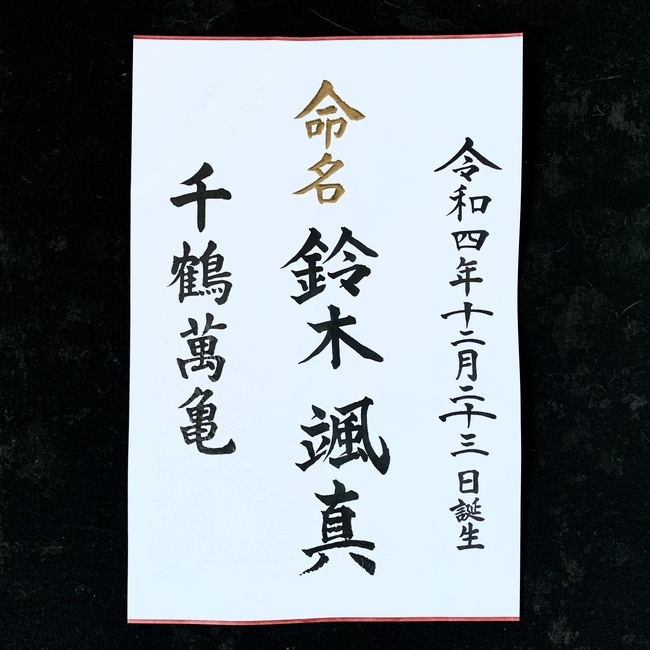 令和四年十二月二十三日誕生
命名
鈴木 颯真
千鶴萬亀